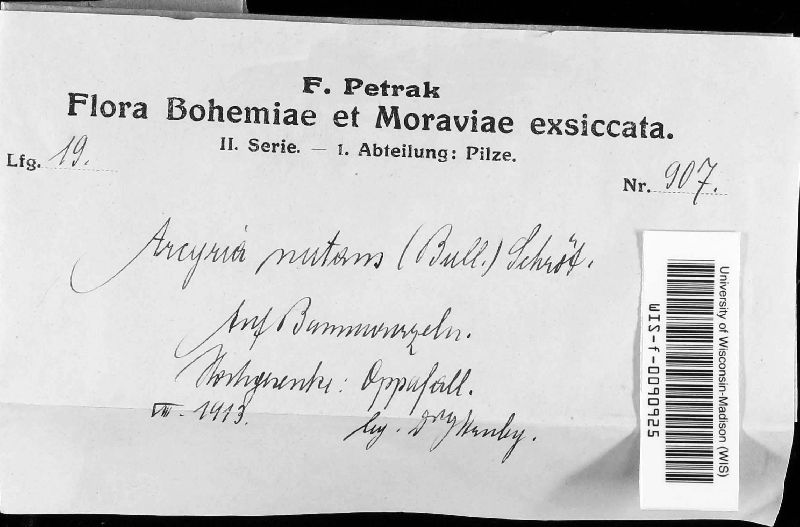 F. Petrak
Flora Bohemiae et Moraviae exsiccata.
II. Serie. — 1. Abteilung: Pilze.
Lfg. 19.
Nr. 907.
Arcyria nutans (Bull.) Schröt.
Auf Baumwurzeln.
Hochgesenke: Oppafall.
VIII. 1913.
leg.
University of Wisconsin-Madison (WIS)
WIS-f-0090925